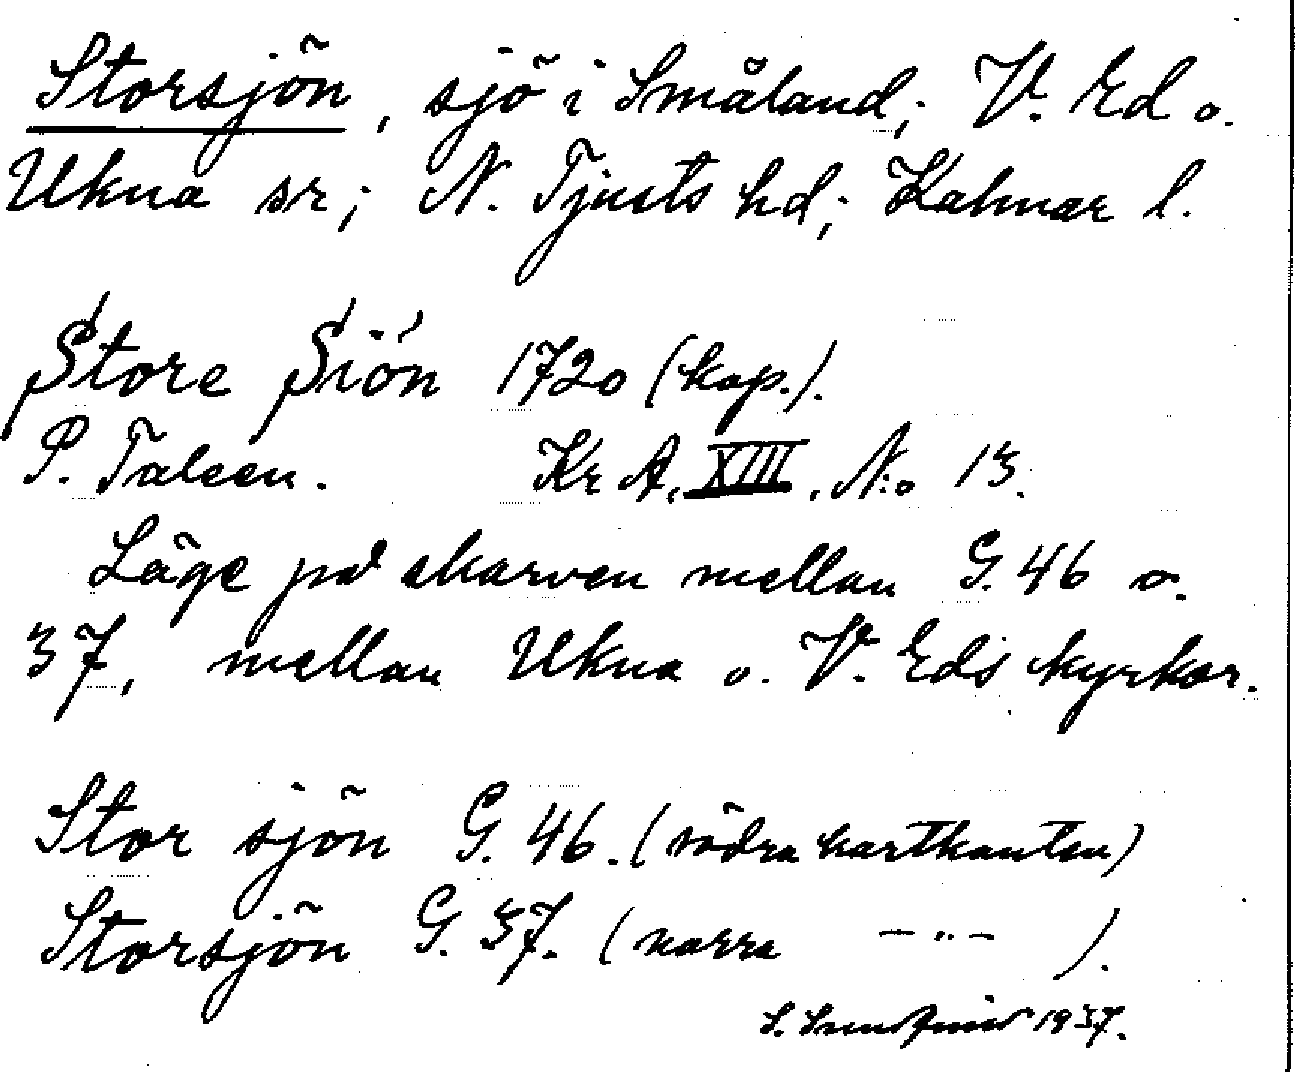 Storsjön, sjö i Småland; V. Ed o.
Ukna sr; N. Tjusts hd; Kalmar l.
Store Siön 1720 (kop.).
P. Taleen. Kr A, XIII, N:o 13.
Läge på skarven mellan G. 46 o.
37, mellan Ukna o. V. Eds kyrkor.
Stor sjön G. 46. (södra kartkanten)
Storsjön G. 37. (norra —"— ).
S. 1937.